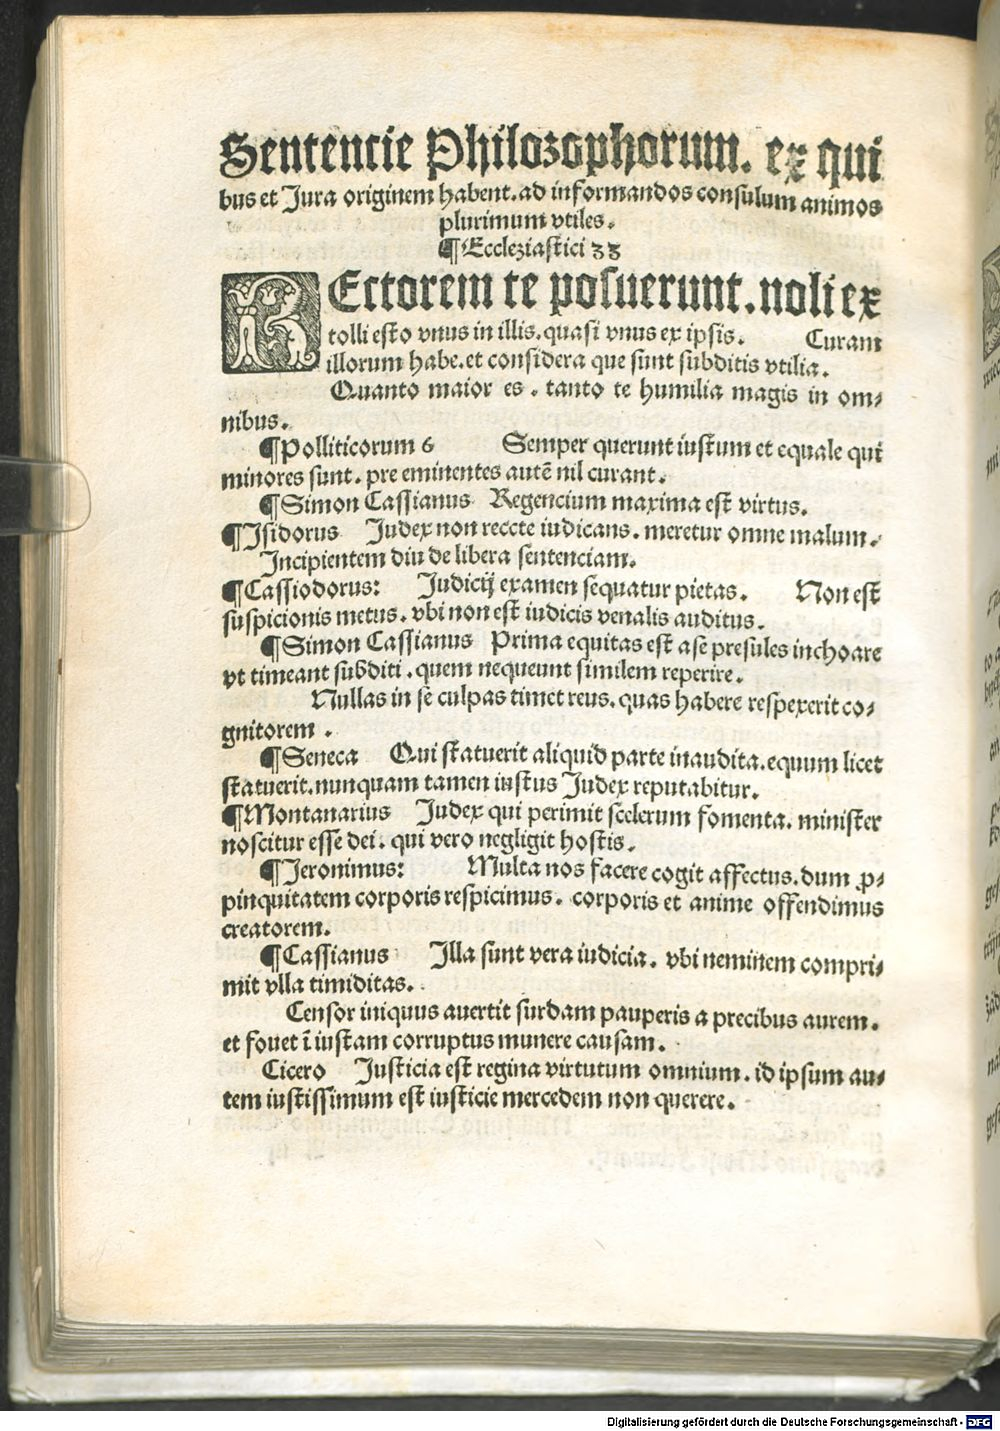 Sentencie Philozophorum. ex qui
bus et Jura originem habent. ad informandos consulum animos
plurimum vtiles.
¶Eccleziastici 33
REctorem te posuerunt. noli ex
tolli esto vnus in illis. quasi vnus ex ipsis. Curam
illorum habe. et considera que sunt subditis vtilia.
Quanto maior es. tanto te humilia magis in om⸗
nibus.
¶Polliticorum 6 Semper querunt iustum et equale qui
minores sunt. pre eminentes autē nil curant.
¶Simon Cassianus Regencium maxima est virtus.
¶Isidorus Judex non reccte iudicans. meretur omne malum.
Incipientem diu de libera sentenciam.
¶Cassiodorus: Judicij examen sequatur pietas. Non est
suspicionis metus. vbi non est iudicis venalis auditus.
¶Simon Cassianus Prima equitas est a se presules inchoare
vt timeant subditi. quem nequeunt similem reperire.
Nullas in se culpas timet reus. quas habere respexerit co⸗
gnitorem.
¶Seneca Qui statuerit aliquid parte inaudita. equum licet
statuerit. nunquam tamen iustus Judex reputabitur.
¶Montanarius Judex qui perimit scelerum fomenta. minister
noscitur esse dei. qui vero negligit hostis.
¶Jeronimus: Multa nos facere cogit affectus. dum ꝓ⸗
pinquitatem corporis respicimus. corporis et anime offendimus
creatorem.
¶Cassianus Illa sunt vera iudicia. vbi neminem compri⸗
mit vlla timiditas.
Censor iniquus auertit surdam pauperis a precibus aurem.
et fouet ī iustam corruptus munere causam.
Cicero Justicia est regina virtutum omnium. id ipsum au⸗
tem iustissimum est iusticie mercedem non querere.
Digitalisierung gefördert durch die Deutsche Forschungsgemeinschaft - DFG